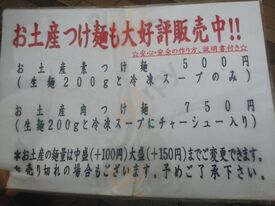 お土産つけ麺も大好評販売中!!
☆安心・安全の作り方、説明書付き☆
お土産素つけ麺 500円
(生麺200gと冷凍スープのみ)
お土産肉つけ麺 750円
(生麺200gと冷凍スープにチャーシュー入り)
*お土産の麺量は中盛(+100円)大盛(+150円)までご変更できます。
*売り切れの場合もございます。予めご了承下さい。